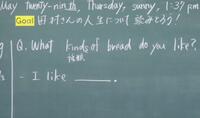 May twenty-ninth, Thursday, sunny, 1:37 pm
Goal 田村さんの人生について 読みとろう!
Q. What kinds of bread do you like?
種類
- I like ______.